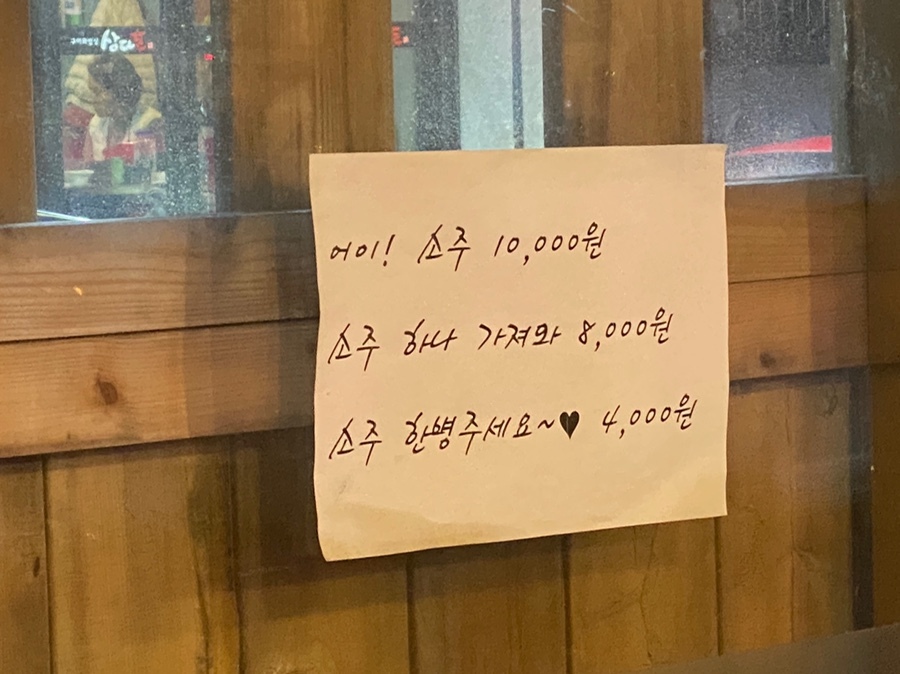 상다헌
어이! 소주 10,000원
소주 하나 가져와 8,000원
소주 한병주세요~♥ 4,000원